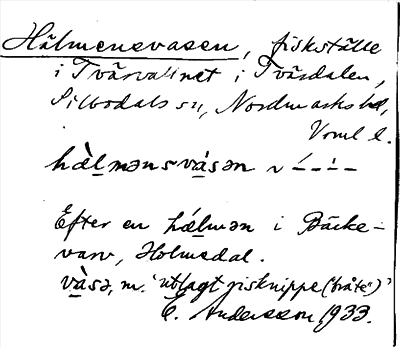 Hälmenevasen, fiskställe
i Tvärvattnet i Tvärdalen,
Silbodals sn, Nordmarks hd,
Vrml l.
hæ̀lmənsvásən ~ –́–̀–
Efter en hǽlmən i Bäcke-
varv, Holmedal.
và̱sə, m. 'utlagt risknippe ("bråte")'
E. Andersson, 1933.